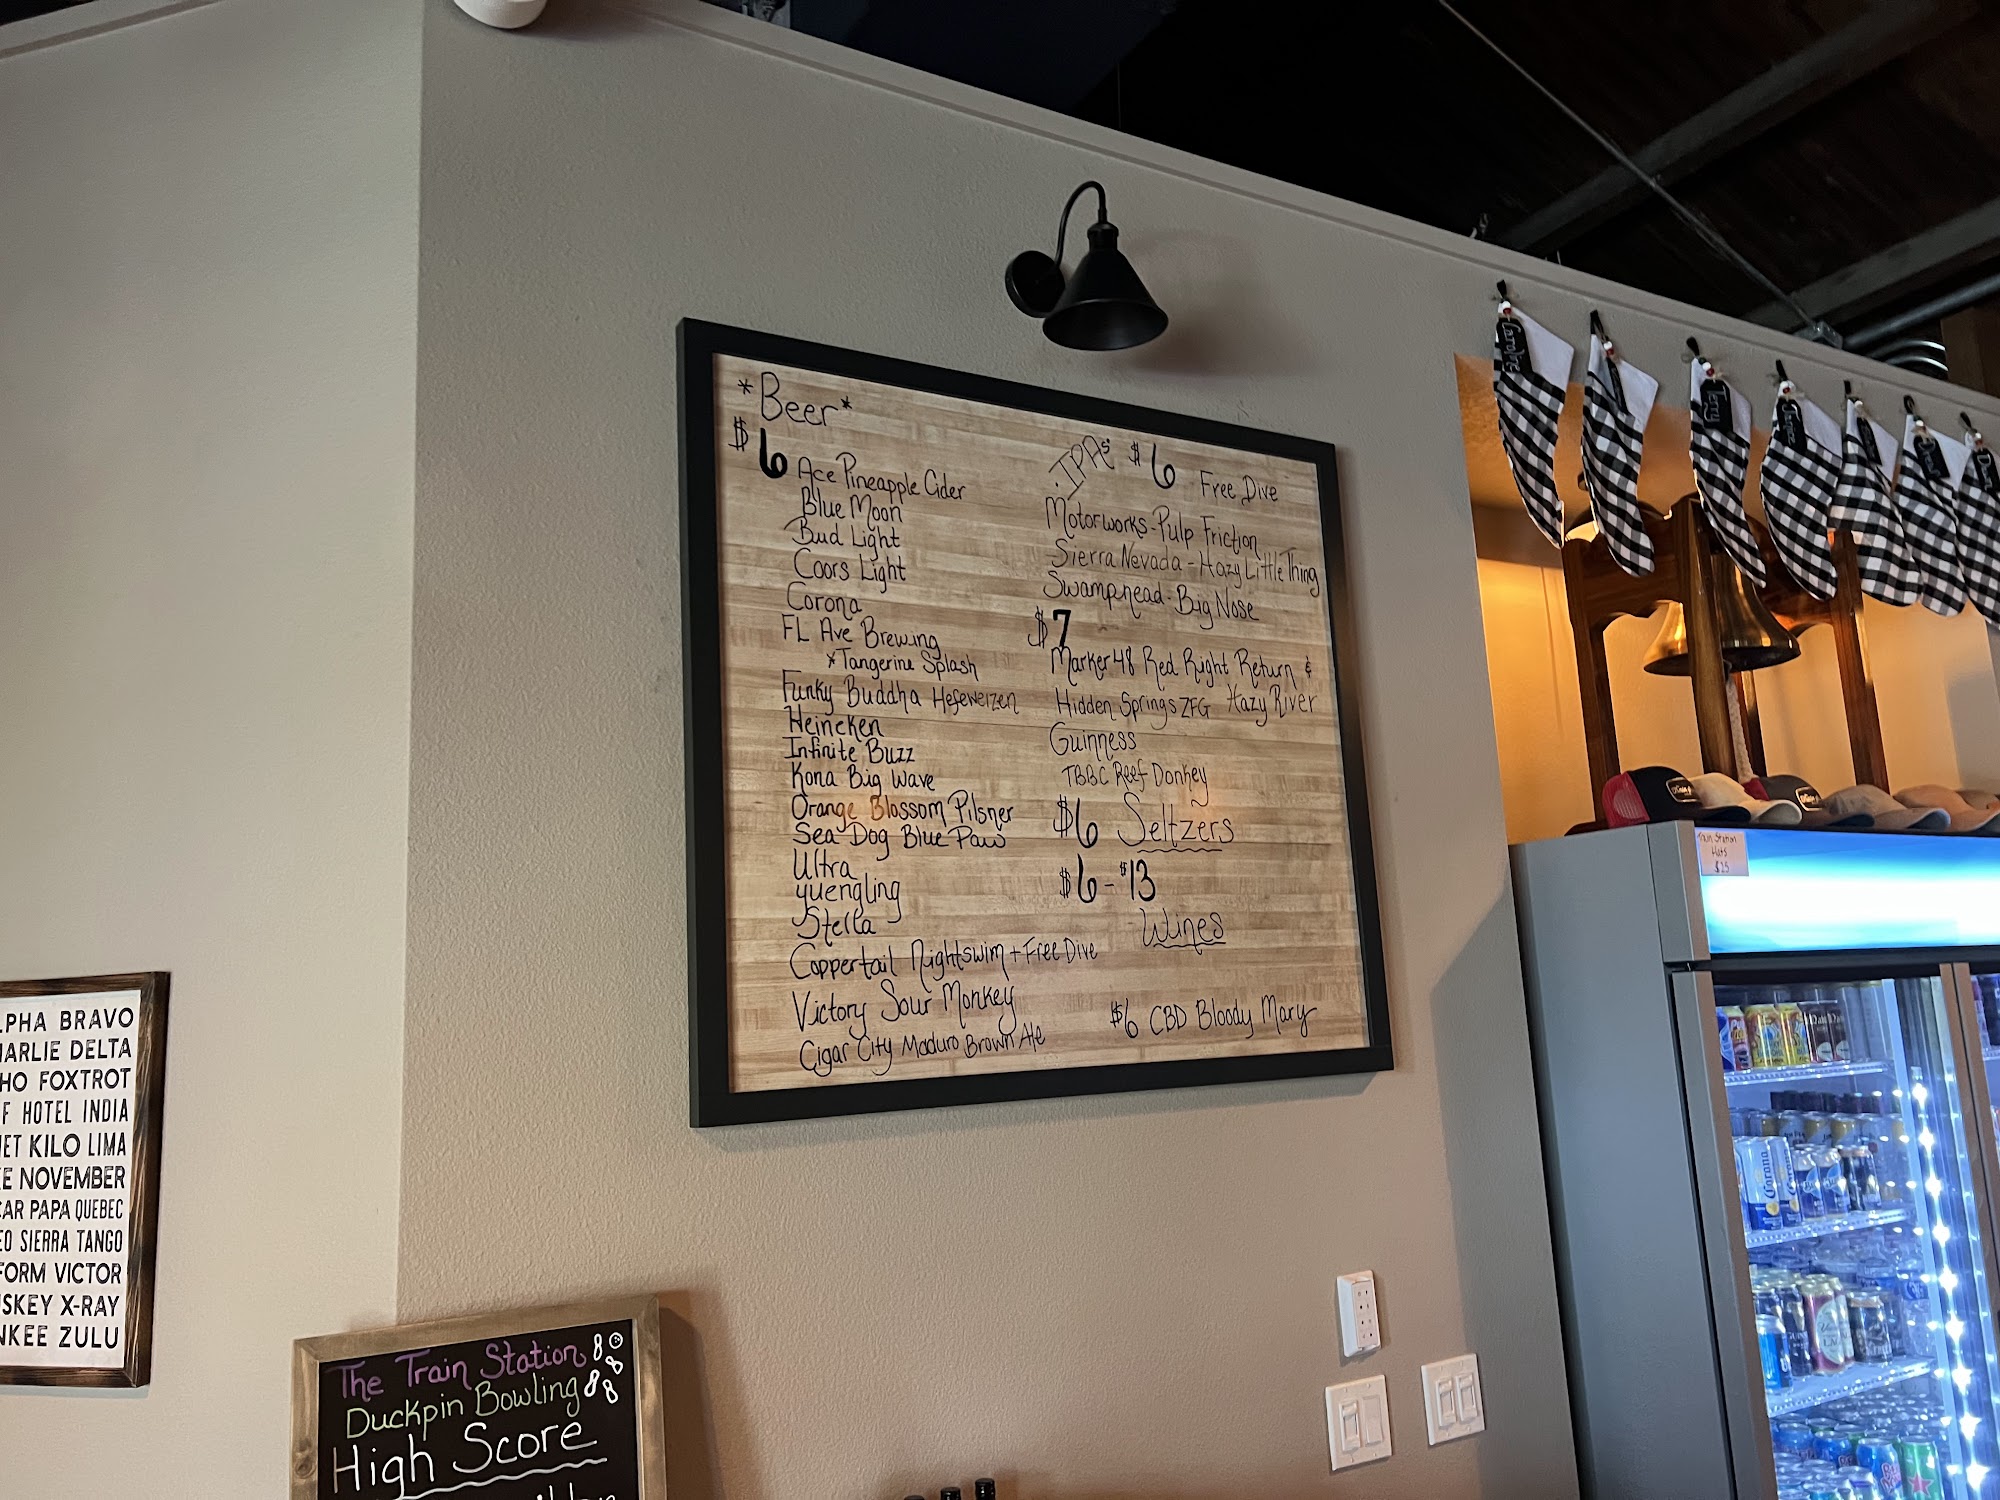 *Beer*
$6
Ace Pineapple Cider
Blue Moon
Bud Light
Coors Light
Corona
FL Ave Brewing
*Tangerine Splash
Funky Buddha Hefeweizen
Heineken
Infinite Buzz
Kona Big Wave
Orange Blossom Pilsner
Sea Dog Blue Paw
Ultra
yuengling
Stella
Coppertail Nightswim + Free Dive
Victory Sour Monkey
Cigar City Maduro Brown Ale
IPAs $6 Free Dive
Motorworks-Pulp Friction
Sierra Nevada - Hazy Little Thing
Swamphead-Big Nose
$7
Marker 48 Red Right Return &
Hidden Springs ZFG Hazy River
Guinness
TBBC Reef Donkey
$6 Seltzers
$6 - $13
Wines
$6 CBD Bloody Mary
Caroline
Terry
Train Station
Hats
$25
Corona
LPHA BRAVO
HARLIE DELTA
HO FOXTROT
F HOTEL INDIA
ET KILO LIMA
E NOVEMBER
CAR PAPA QUEBEC
EO SIERRA TANGO
FORM VICTOR
SKEY X-RAY
NKEE ZULU
The Train Station
Duckpin Bowling
High Score